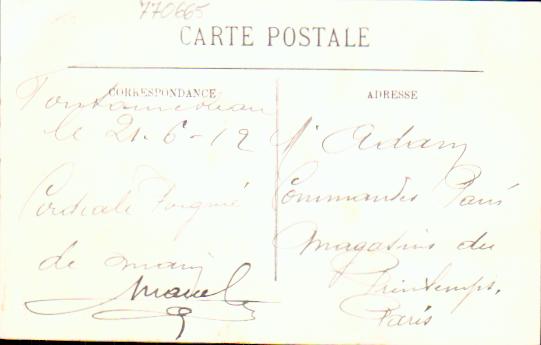 770665
CARTE POSTALE
CORRESPONDANCE
ADRESSE
Fontainebleau
le 21-6-12
Cordiale Poignée
de main
Marcel
Mr Adam
Commandes Paris
Magasins du
Printemps,
Paris